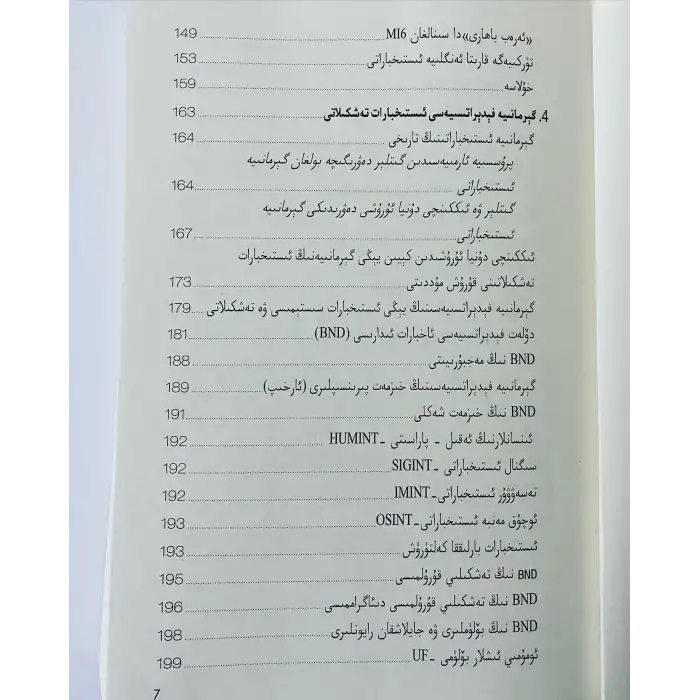 «ئەرەب باھارى»دا سىنالغان MI6 ........ 149
تۈركىيەگە قارىتا ئەنگلىيە ئىستىخباراتى ........ 153
خۇلاسە ........ 159
4. گېرمانىيە فېدېراتسىيەسى ئىستىخبارات تەشكىلاتى ........ 163
گېرمانىيە ئىستىخباراتىنىڭ تارىخى ........ 164
پرۇسسىيە ئارمىيەسىدىن گىتلېر دەۋرىگىچە بولغان گېرمانىيە
ئىستىخباراتى ........ 164
گىتلېر ۋە ئىككىنچى دۇنيا ئۇرۇشى دەۋرىدىكى گېرمانىيە
ئىستىخباراتى ........ 167
ئىككىنچى دۇنيا ئۇرۇشىدىن كېيىن يېڭى گېرمانىيەنىڭ ئىستىخبارات
تەشكىلاتىنى قۇرۇش مۇددىتى ........ 173
گېرمانىيە فېدېراتسىيەسىنىڭ يېڭى ئىستىخبارات سىستېمىسى ۋە تەشكىلاتى ..... 179
دۆلەت فېدېراتسىيەسى ئاخبارات ئىدارىسى (BND) ........ 181
BND نىڭ مەجبۇرىيىتى ........ 188
گېرمانىيە فېدېراتسىيەسىنىڭ خىزمەت پىرىنسىپلىرى (ئارخىپ) ........ 189
BND نىڭ خىزمەت شەكلى ........ 191
ئىنسانلارنىڭ ئەقىل - پاراسىتى -HUMINT ........ 192
سىگنال ئىستىخباراتى -SIGINT ........ 192
تەسەۋۋۇر ئىستىخباراتى-IMINT ........ 192
ئوچۇق مەنبە ئىستىخباراتى-OSINT ........ 193
ئىستىخبارات بارلىققا كەلتۈرۈش ........ 193
BND نىڭ تەشكىلىي قۇرۇلمىسى ........ 195
BND نىڭ تەشكىلىي قۇرۇلمىسى دىئاگراممىسى ........ 196
BND نىڭ بۆلۈملىرى ۋە جايلاشقان رايونلىرى ........ 198
ئومۇمىي ئىشلار بۆلۈمى -UF ........ 199
7